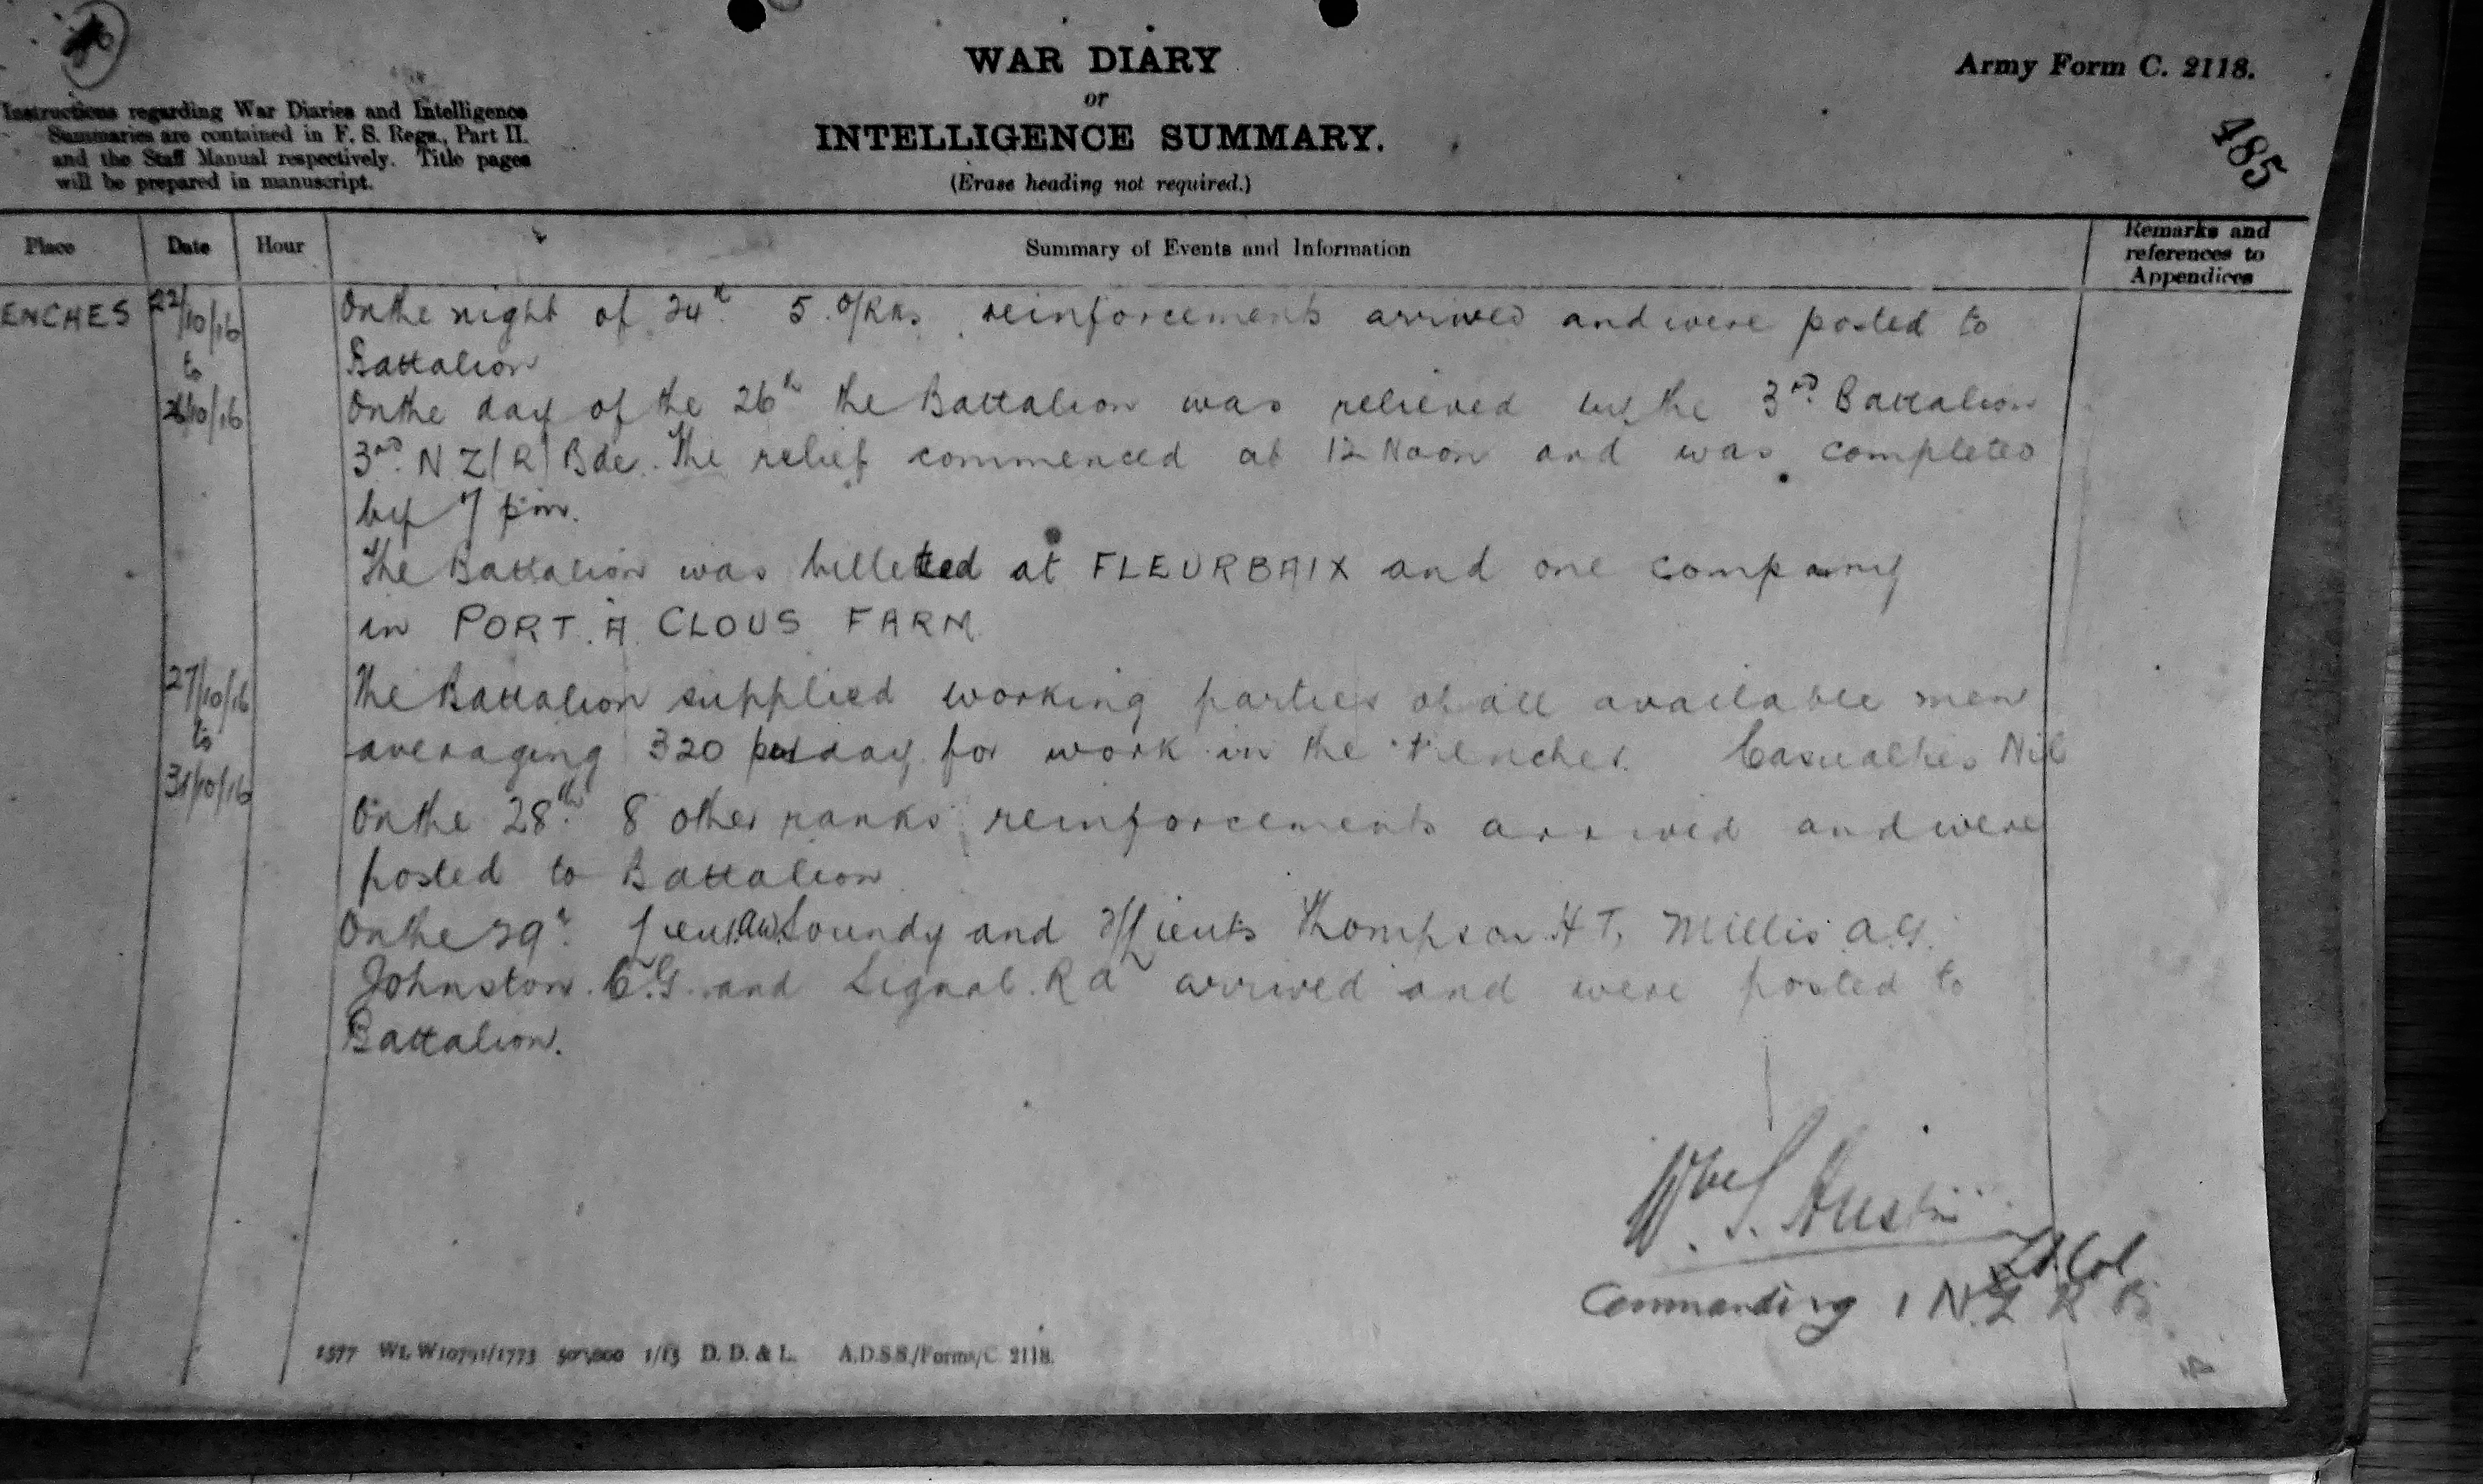 WAR DIARY
or
INTELLIGENCE SUMMARY.
(Erase heading not required.)
Army Form C. 2118.
485
Instructions regarding War Diaries and Intelligence
Summaries are contained in F. S. Regs., Part II.
and the Staff Manual respectively. Title pages
will be prepared in manuscript.
Place Date Hour Summary of Events and Information Remarks and
references to
Appendices
ENCHES 22/10/16 On the night of 24th 5. O/Rks. reinforcements arrived and were posted to
to Battalion
26/10/16 On the day of the 26th the Battalion was relieved by the 3rd Battalion
3rd N Z (R) Bde. The relief commenced at 12 Noon and was completed
by 7 pm.
The Battalion was billeted at FLEURBAIX and one company
in PORT. A CLOUS FARM
27/10/16 The Battalion supplied working parties of all available men
to averaging 320 per day for work in the trenches. Casualties Nil
31/10/16 On the 28th 8 other ranks reinforcements arrived and were
posted to Battalion
On the 29th Lieut. A.W. Soundy and 2/Lieuts Thompson H T, Millis A.G.
Johnston C.G. and Signal R A arrived and were posted to
Battalion.
W. S. Austin
Lt. Col
Commanding 1 N Z R B
A.D.S.S./Forms/C 2118.